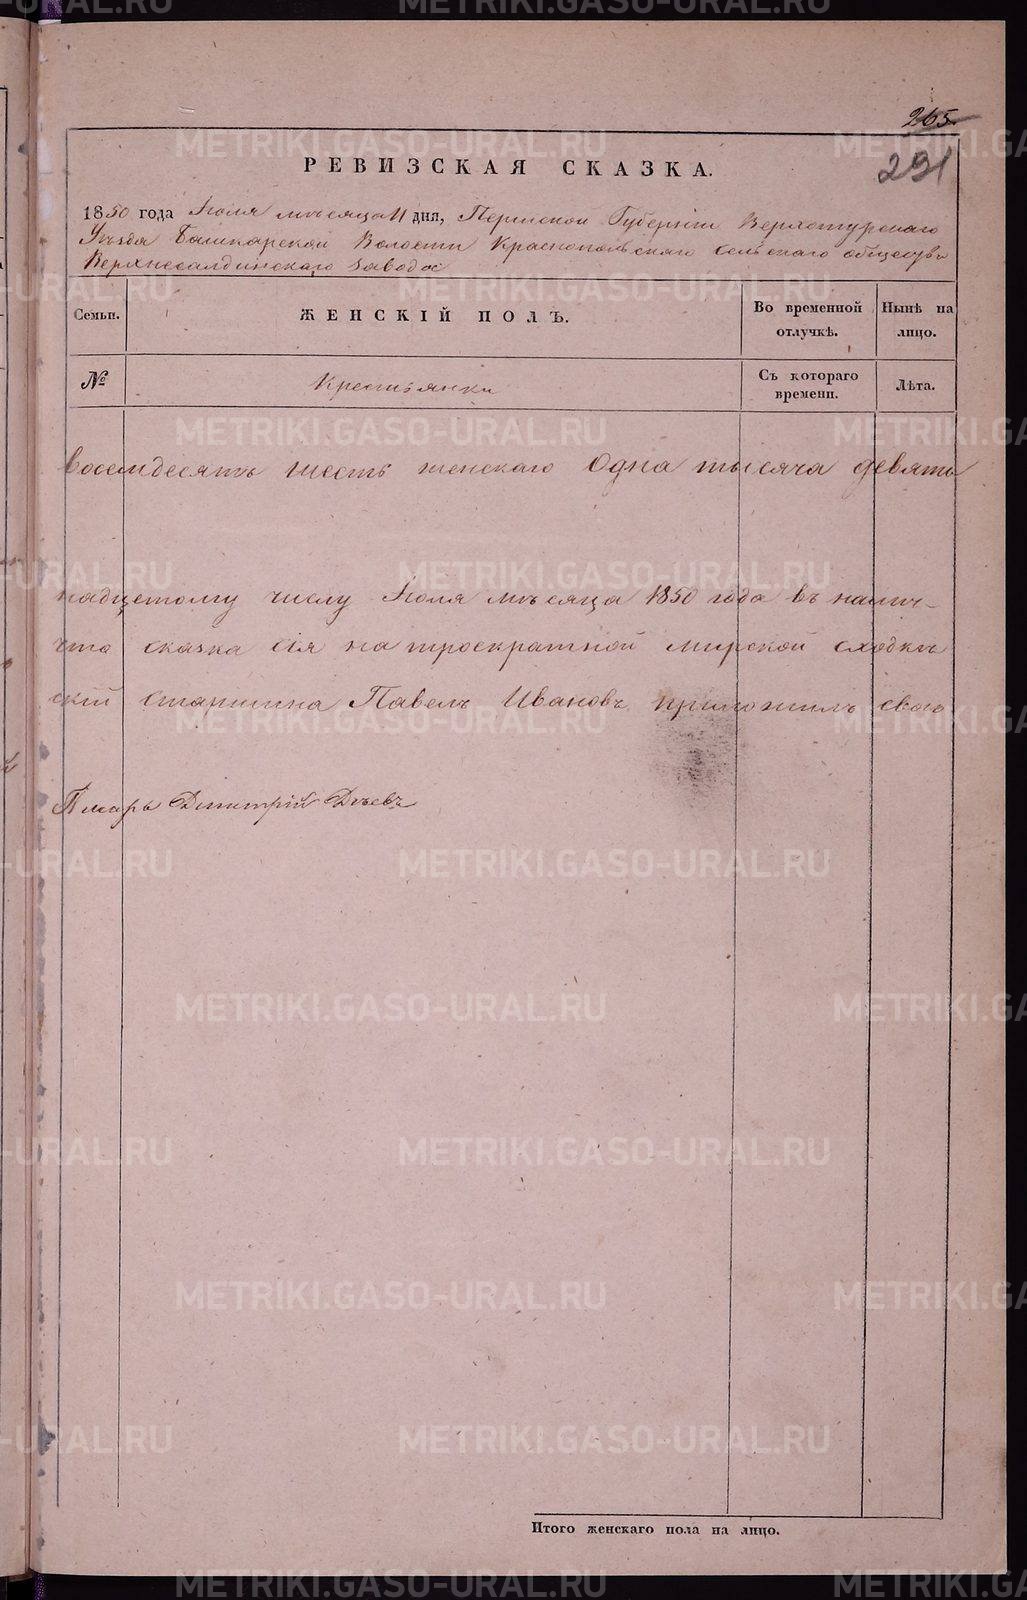 265.
291
РЕВИЗСКАЯ СКАЗКА.
1850 года Іюля мѣсяца 11 дня, Пермской Губерніи Верхотурскаго
Уѣзда Башкарской Волости Краснопольскаго сельскаго общества
Верхнесалдинскаго завода
Семьи.
ЖЕНСКІЙ ПОЛЪ.
Во временной отлучкѣ.
Нынѣ на лицо.
№
Крестьянки
Съ котораго времени.
Лѣта.
восемдесятъ шесть женскаго Одна тысяча девять
надцетому числу Іюля мѣсяца 1850 года въ налич-
что сказка сія на троекратной мирской сходкѣ
скій старшина Павелъ Ивановъ приложилъ свою
Писарь Димитрій Дѣевъ
Итого женскаго пола на лицо.
METRIKI.GASO-URAL.RU